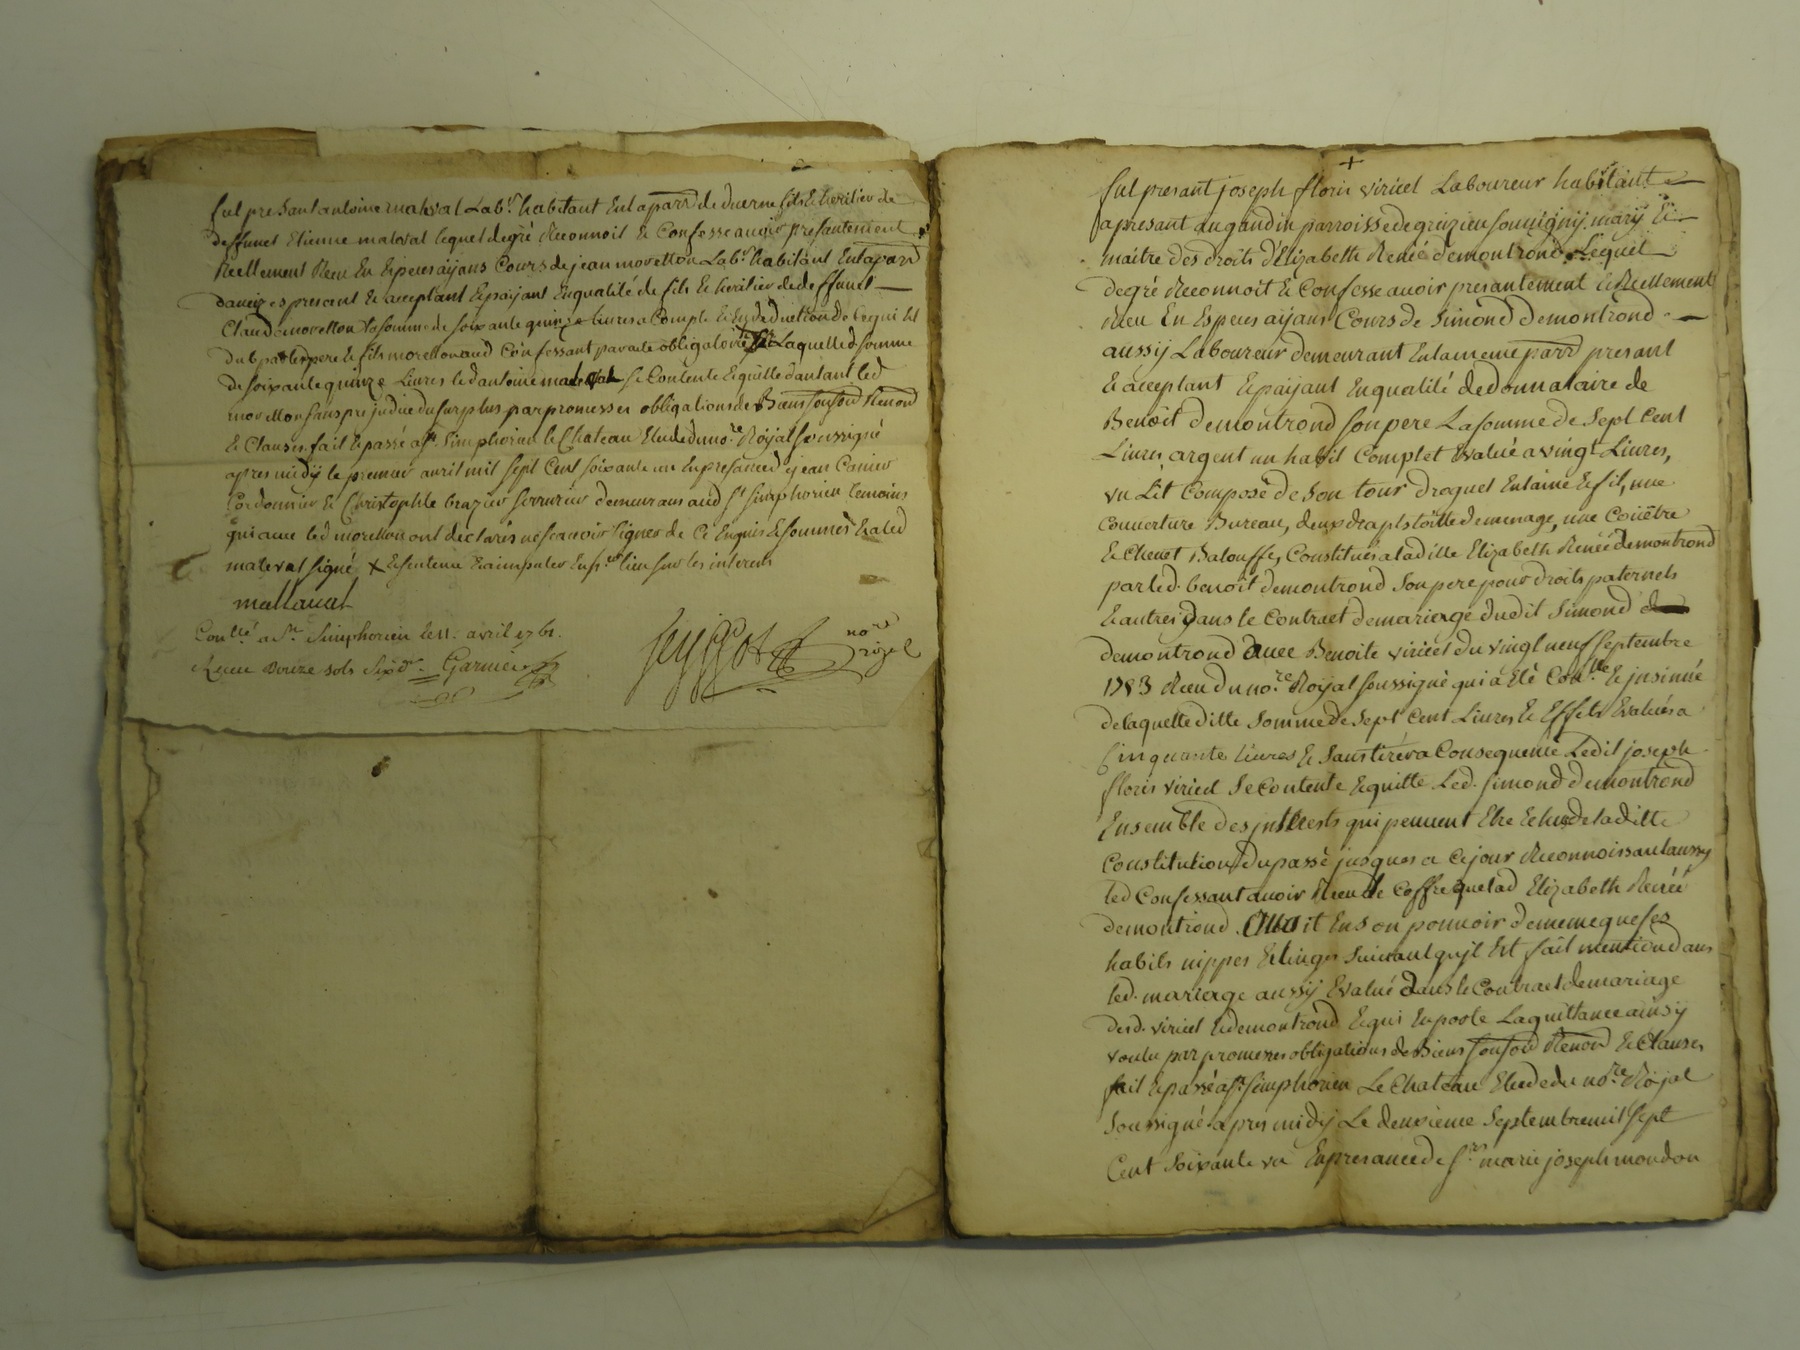 fut presant antoine malaval Lab.r habitant En la parr.d de duerne fils & heritier de
deffunct Etienne malaval lequel de gré Reconnoit & Confesse avoir presantement &
Reellement Recu En Especes aijans Cours de jean moretton Lab.r habitant En la parr.d
d'aveizes present & acceptant & paijant En qualité de fils & heritier de deffunct
Claude moretton la somme de soixante quinze livres a Compte & En deduction de Ce qui Est
du b par led pere & fils moretton aud Confessant par acte obligatoire Laquelle d. somme
de soixante quinze Livres led antoine malaval se Contente & quitte d'autant led
moretton sans prejudice du surplus par promesses obligations de Biens Renon
& Clauses fait & passé a s.t Simphorien le Chateau Etude du no.re Roÿal soussigné
apres midÿ le premier avril mil sept Cent soixante un En presance de jean
Cordonnier & Christophle brazier serrurier demeurans aud s.t Simphorien temoins
qui avec led moretton ont declarés ne scavoir signer de Ce Enquis & sommés & a led
malaval signé X & sentence & a imputer En p.er lieu sur les interests
mallaval
Con.llé a S.t Simphorien le 11. avril 1761.
Receu Douze sols Six d.rs Garnier
no.re
roÿal
+
fut presant joseph floris viricel Laboureur habitant
a presant au gandin parroisse de grezieu souvignÿ marÿ &
maitre des droits d'Elizabeth Renée demontrond Lequel
de gré Reconnoit & Confesse avoir presantement & Reellement
Recu En Especes aijans Cours de Simond demontrond
aussÿ Laboureur demeurant En la meme parr.d presant
& acceptant & paijant En qualité de donnataire de
Benoît demontrond son pere La somme de Sept Cent
Livres argent un habit Complet Evalué a vingt Livres,
un Lit Composé de son tour droguet En laine & fil, une
Couverture Bureau, deux draps toille de menage, une Coüetre
& Chevet Balouffe, Constitués a ladille Elizabeth Renée demontrond
par led. benoît demontrond son pere pour droits paternels
& autres dans le Contract de mariage dudit Simond
demontrond avec Benoite viricel du vingt neuf septembre
17 3 Recu du no.re Roÿal soussigné qui a Eté Con.llé & insinué
de laquelle ditte somme de Sept Cent Livres & Effets Evalués a
Cinquante livres & sans tirer a Consequence Ledit joseph
floris viricel Se Contente & quitte Led. Simond demontrond
Ensemble des interests qui peuvent Etre Echus de laditte
Constitution du passé jusques a Ce jour Reconnoissant aussÿ
led Confessant avoir Recu le Coffre que lad Elizabeth Renée
demontrond Avoit En son pouvoir de meme que ses
habits nippes & linges suivant qu'jl Est fait mention dans
led. mariage aussÿ Evalué dans le Contract de mariage
desd. viricel & demontrond & qui En porte La quittance ainsÿ
voulu par promesses obligations de Biens Renon & Clauses
fait & passé a s.t Simphorien Le Chateau Etude du no.re Roÿal
Soussigné apres midÿ Le deuxieme Septembre mil sept
Cent Soixante un En presance de s.r marie joseph mondon